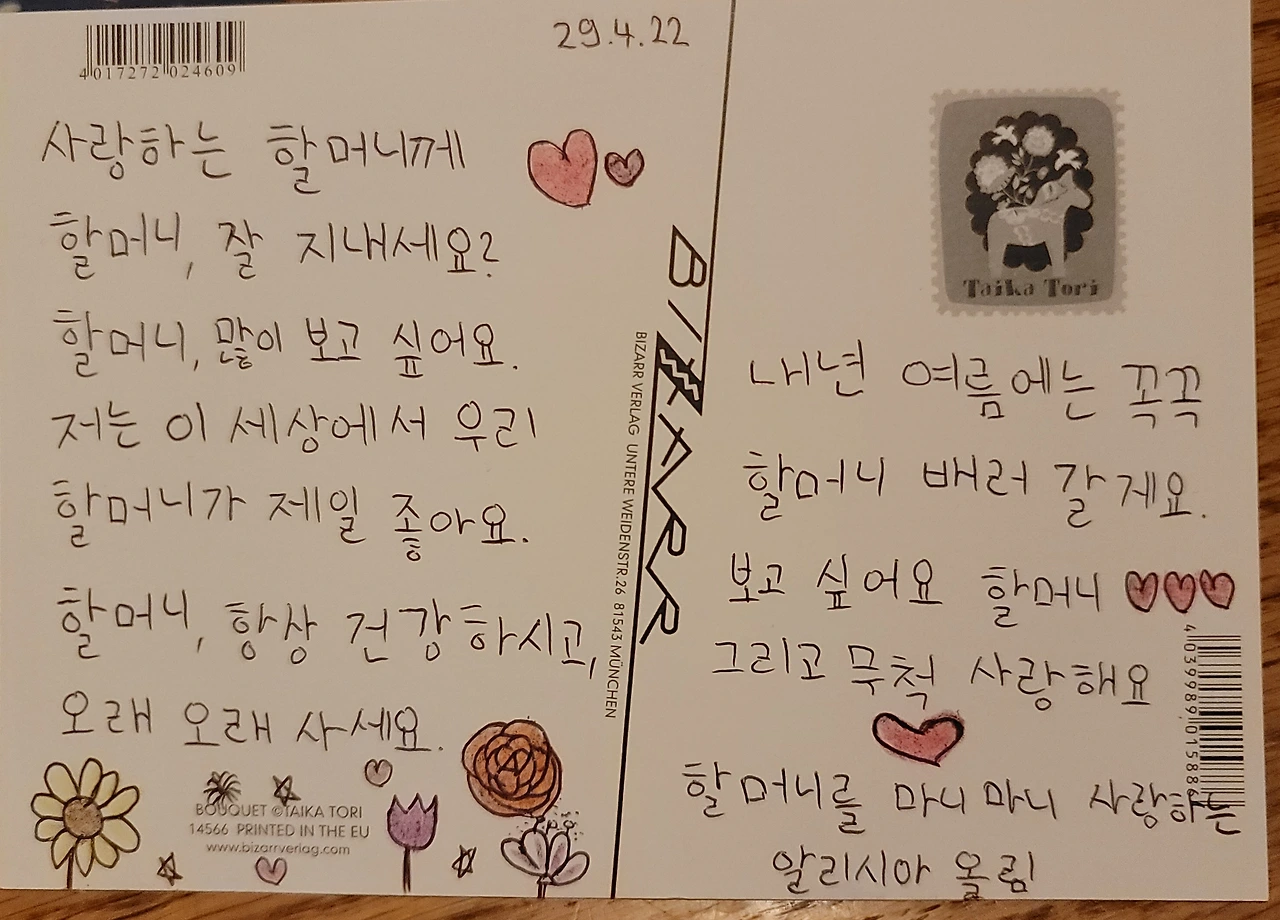 4 017272 024609
29.4.22
사랑하는 할머니께
할머니, 잘 지내세요?
할머니, 많이 보고 싶어요.
저는 이 세상에서 우리
할머니가 제일 좋아요.
할머니, 항상 건강하시고,
오래 오래 사세요.
BOUQUET ©TAIKA TORI
14566 PRINTED IN THE EU
www.bizarrverlag.com
BIZARR
BIZARR VERLAG UNTERE WEIDENSTR.26 81543 MÜNCHEN
Taika Tori
내년 여름에는 꼭꼭
할머니 배러 갈게요.
보고 싶어요 할머니
그리고 무척 사랑해요
할머니를 마니마니 사랑하는
알리시아 올림